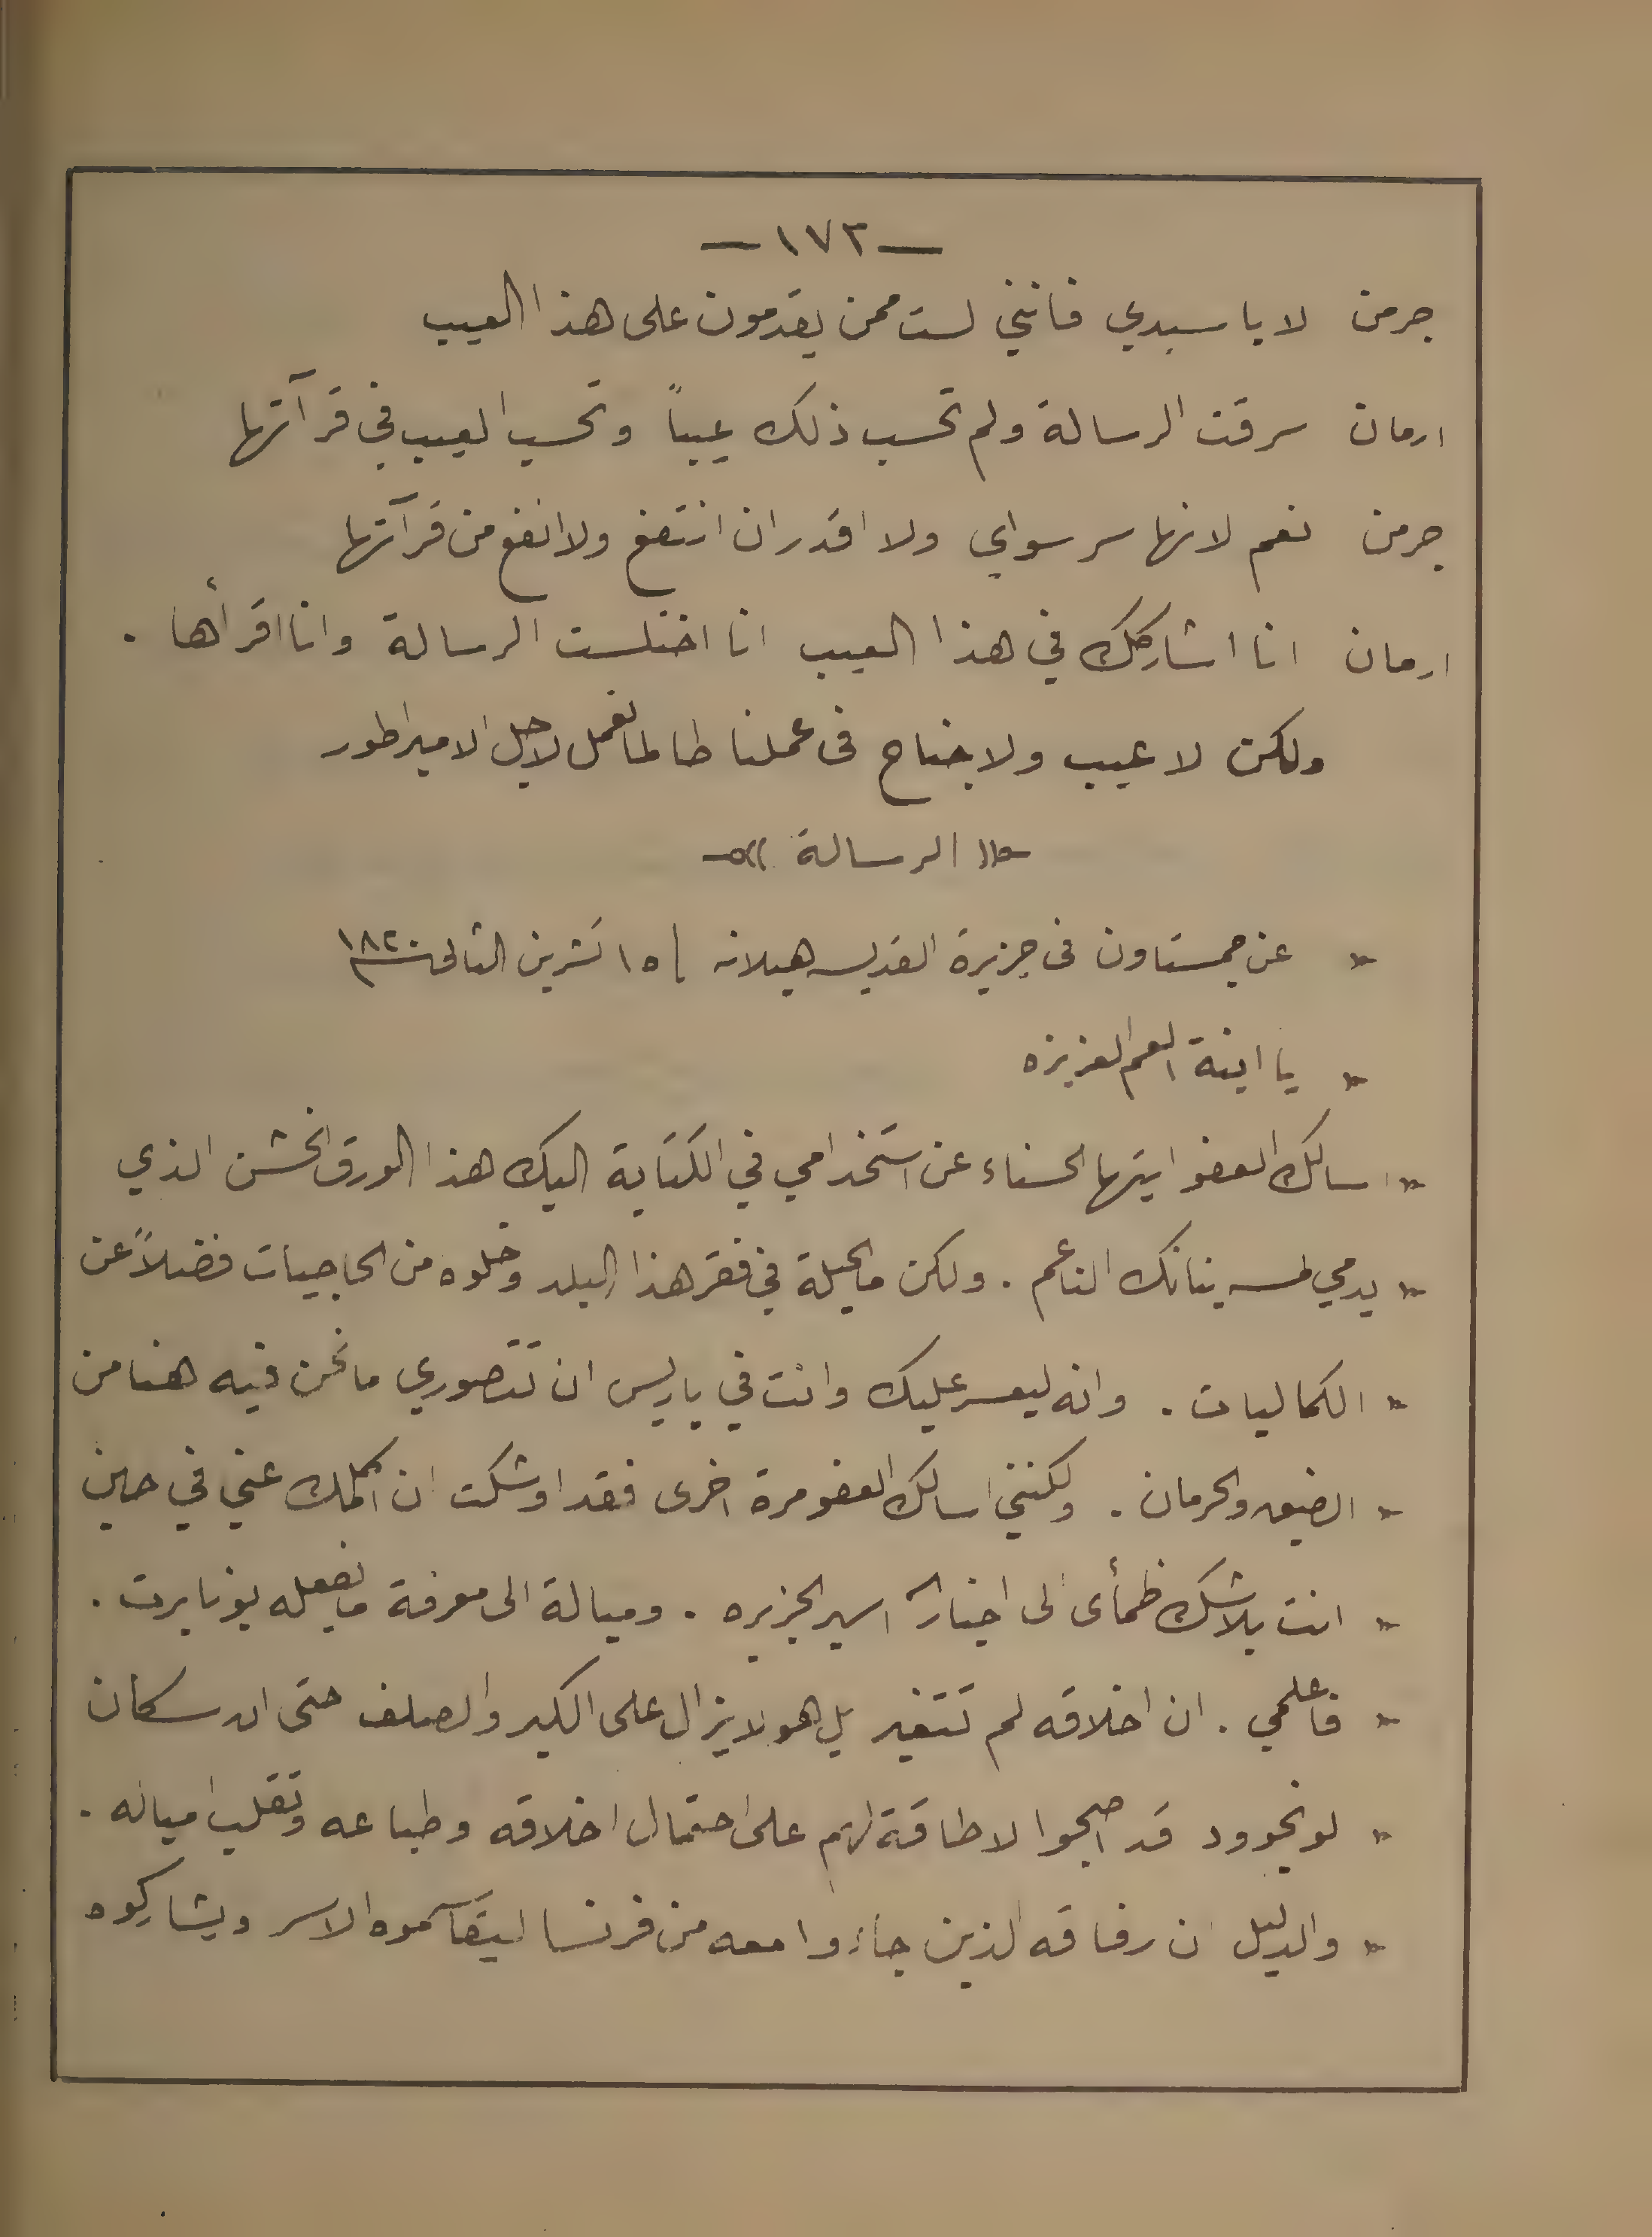 — ١٧٢ —
جرمن لا يا سيدي فانني لست ممن يقدمون على هذا العيب
ارمان سرقت الرسالة ولم تحسب ذلك عيباً وتحسب العيب في قرآتها
جرمن نعم لانها سر سواي ولا اقدر ان انتفع ولا انفع من قرآتها
ارمان انا اشاركك في هذا العيب انا اختلست الرسالة وانا اقرأها .
ولكن لا عيب ولا جناح في عملنا طالما نعمل لاجل الامبراطور
—«( الرسالة )»—
» عن جمستاون في جزيرة القديسه هيلانه / ١٥ تشرين الثاني ١٨٢٠
» يا ابنة العم العزيزه
» اسالك العفو ايتها الحسناء عن استخدامي في الكتابة اليك هذا الورق الخشن الذي
» يدمي لمسه بنانك الناعم . ولكن ما لحيلة في فقر هذا البلد وخلوه من الحاجيات فضلاً عن
» الكماليات . وانه ليعسر عليك وانت في باريس ان تتصوري ما نحن فيه هنا من
» الضيق والحرمان . ولكنني اسالك العفو مرة اخرى فقد اوشكت ان اكلمك عني في حين
» انت بلا شك ظمأى الى اخبار اسير الجزيره . وميالة الى معرفة ما يفعله بونابرت .
» فاعلمي . ان اخلاقه لم تتغير بل هو لا يزال على الكبر والصلف حتى ان سكان
» لونجوود قد اصبحوا لا طاقة لهم على احتمال اخلاقه وطباعه وتقلب امياله .
» والدليل ان رفاقه الذين جاءوا معه من فرنسا ليتقاسموه الاسر ويشاركوه